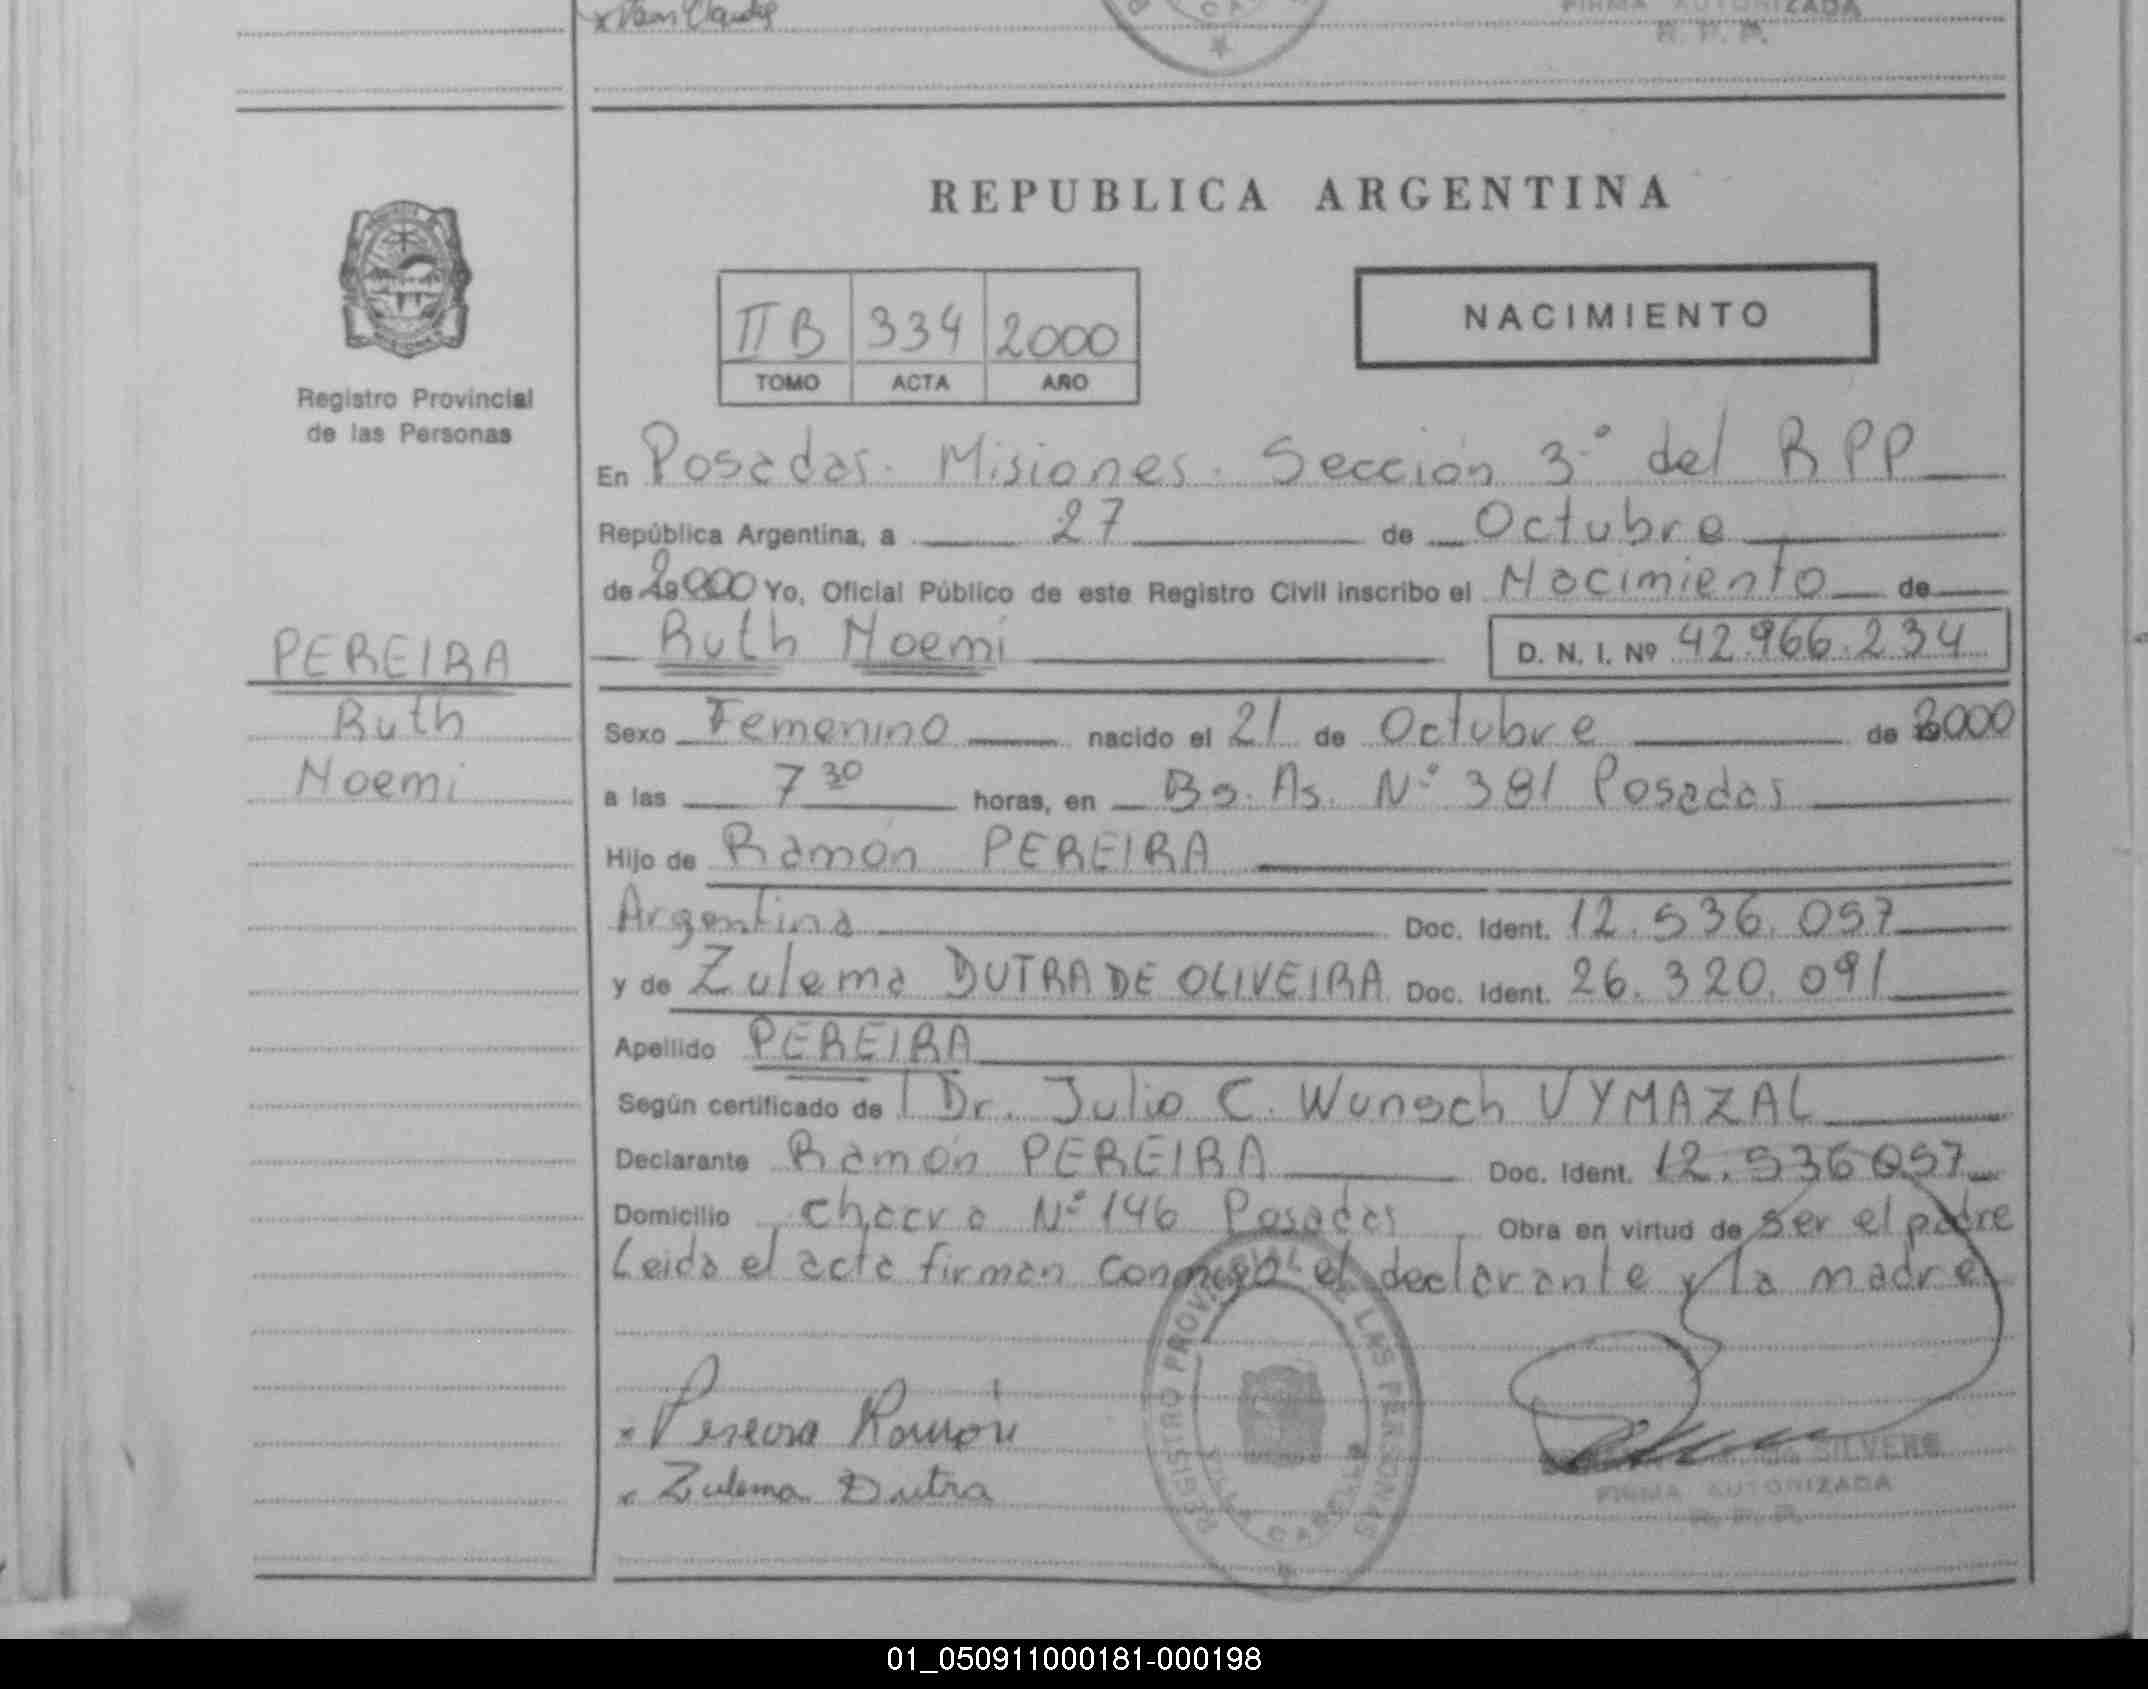 FIRMA AUTORIZADA
R. P. P.
REPUBLICA ARGENTINA
NACIMIENTO
II B 334 2000
TOMO ACTA AÑO
Registro Provincial
de las Personas
En Posadas. Misiones. Sección 3º del RPP
República Argentina, a 27 de Octubre
de 2000 Yo, Oficial Público de este Registro Civil inscribo el Nacimiento de
Ruth Noemi D. N. I. Nº 42.966.234
PEREIRA
Ruth
Noemi
Sexo Femenino nacido el 21 de Octubre de 2000
a las 7 30 horas, en Bs. As. Nº 381 Posadas
Hijo de Ramón PEREIRA
Argentina Doc. Ident. 12.536.057
y de Zulema DUTRA DE OLIVEIRA Doc. Ident. 26.320.091
Apellido PEREIRA
Según certificado de Dr. Julio C. Wunsch VYMAZAL
Declarante Ramón PEREIRA Doc. Ident. 12.536057
Domicilio chacra Nº 146 Posadas Obra en virtud de ser el padre
Leida el acta firman conmigo el declarante y la madre
REGISTRO PROVINCIAL DE LAS PERSONAS
Pereira Ramón
Zulema Dutra
SILVERO
FIRMA AUTORIZADA
R. P. P.
01_050911000181-000198